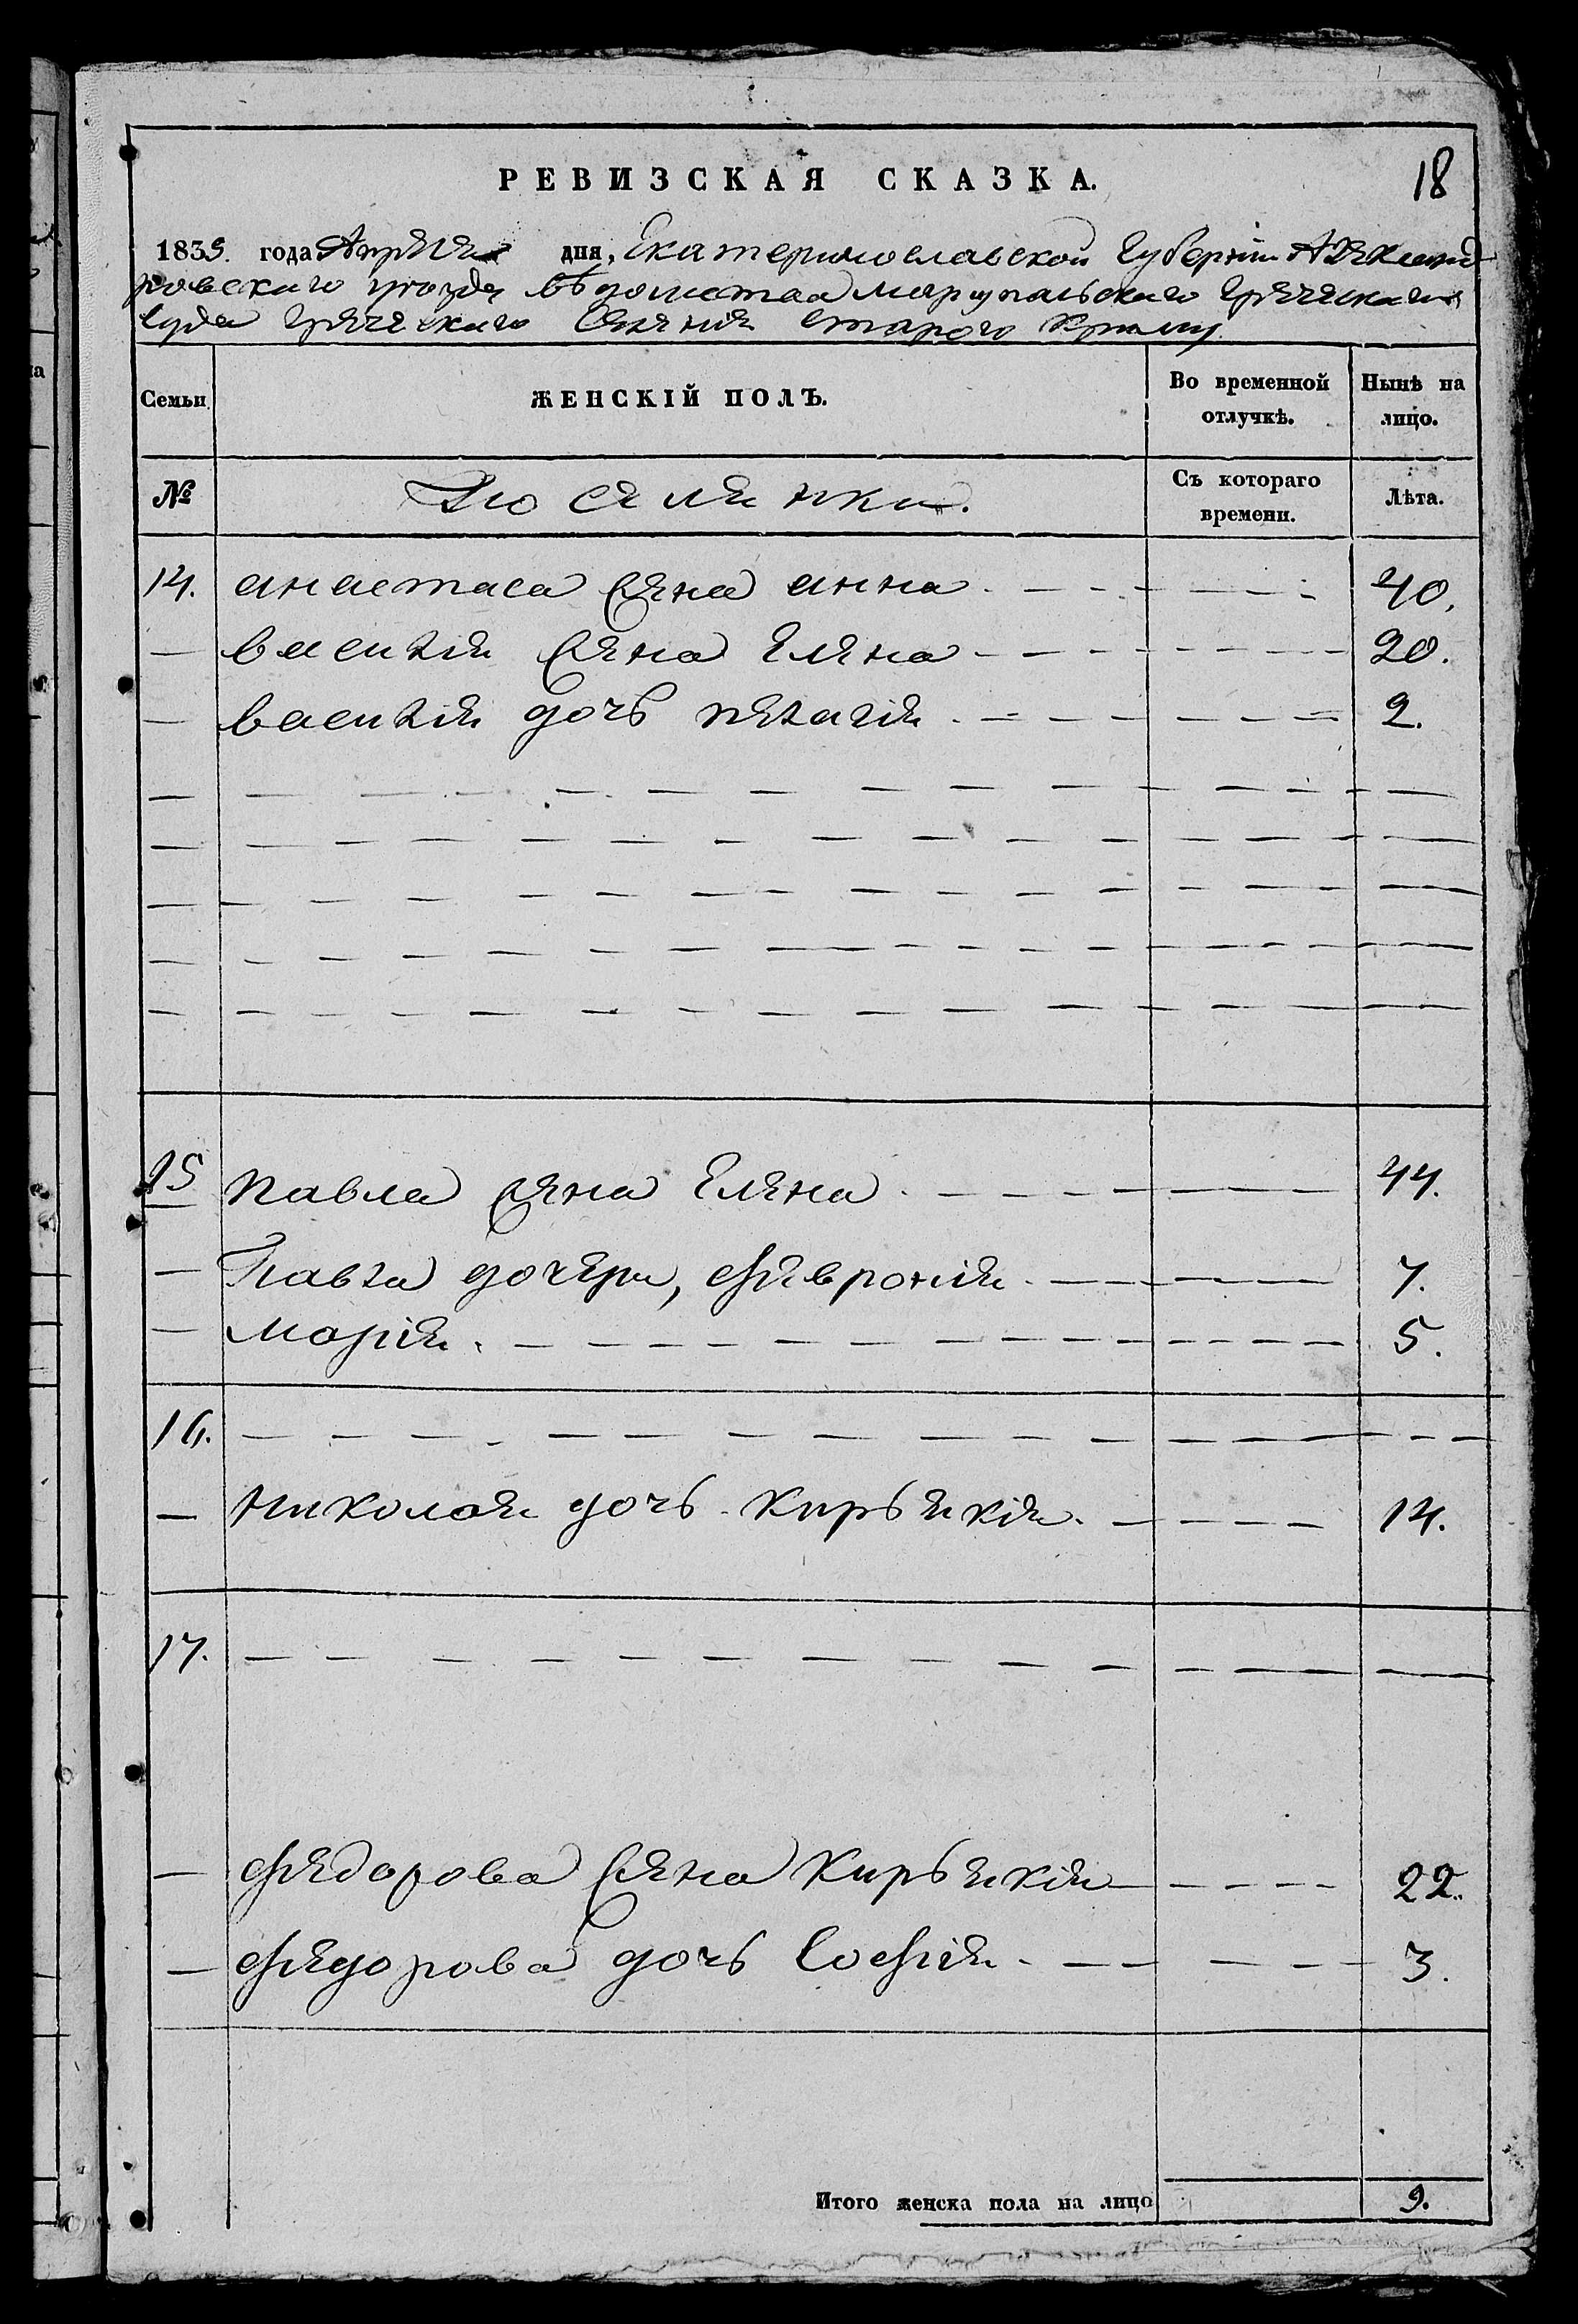 РЕВИЗСКАЯ СКАЗКА.
18
1835. года Апреля дня, Екатеринославской Губернии Александ
ровскаго уезда вѣдомства мариупальскаго греческаго
суда греческаго Селения старого Крыму.
Семьи
ЖЕНСКІЙ ПОЛЪ.
Во временной
отлучкѣ.
Нынѣ на
лицо.
№
Поселенки.
Съ котораго
времени.
Лѣта.
14. анастаса жена анна 40.
— василия жена Елена 20.
— василия дочь пелагия 2.
15 павла жена Елена 44.
— Павла дочери, феврония 7.
— мария 5.
16.
— николая дочь кирьекия 14.
17.
— федорова жена кирьекия 22.
— федорова дочь софия 3.
Итого женска пола на лицо 9.